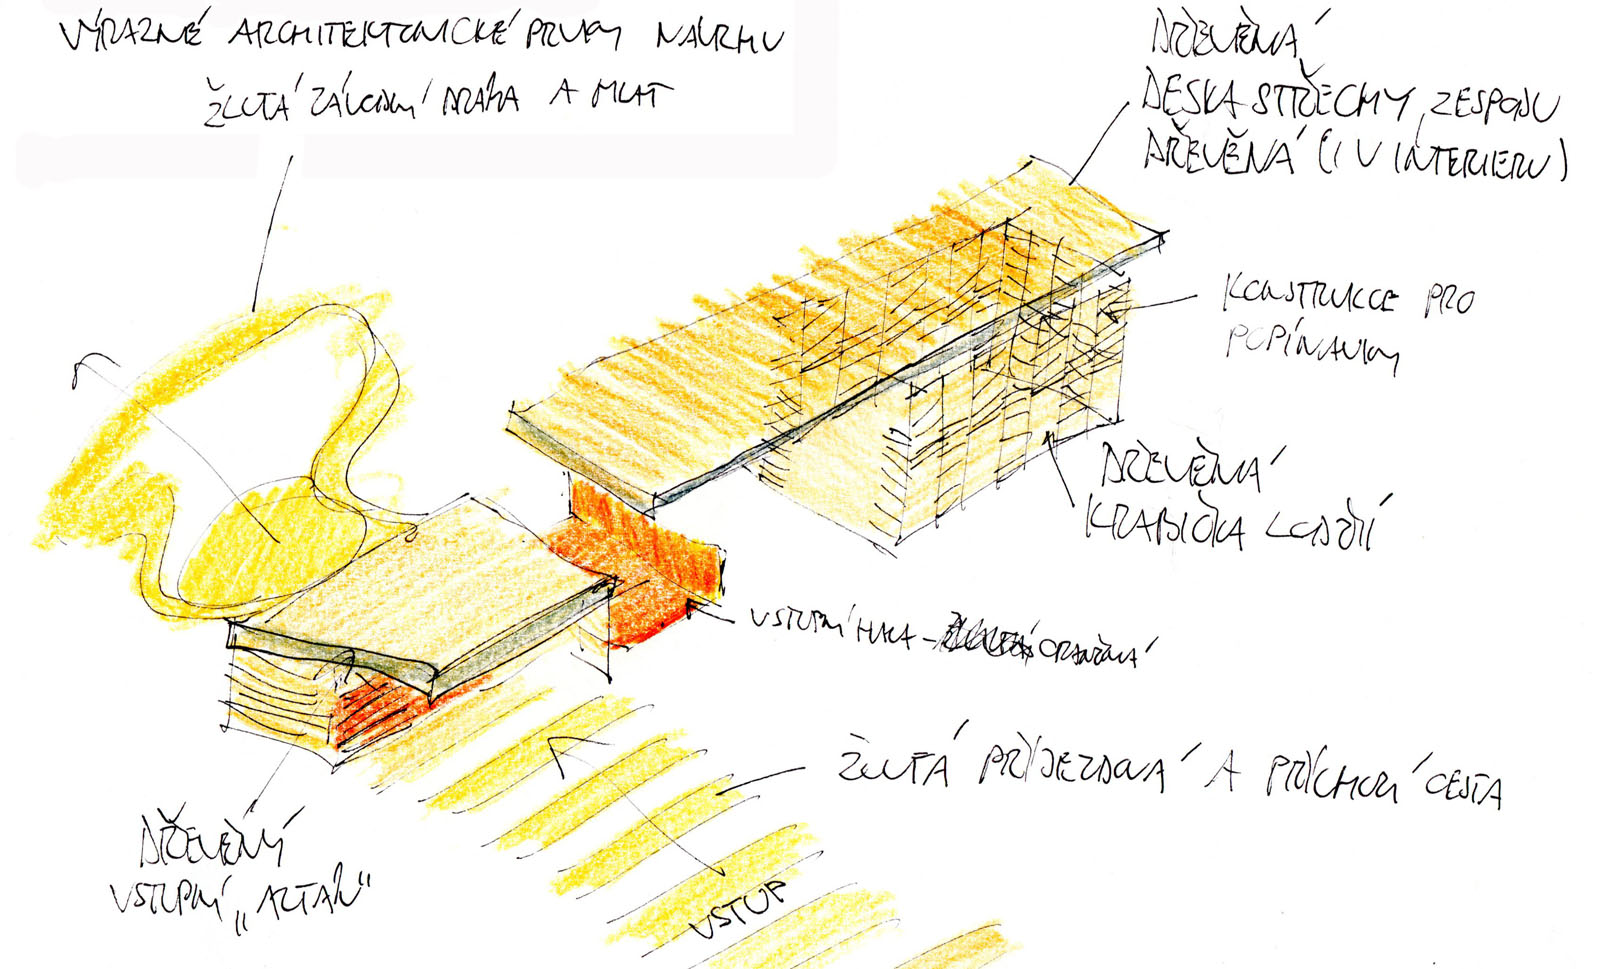 VÝRAZNÉ ARCHITEKTONICKÉ PRVKY NÁVRHU
ŽLUTÁ ZÁVODNÍ DRÁHA A MLAT
DŘEVĚNÁ
DESKA STŘECHY, ZESPODU
DŘEVĚNÁ (I V INTERIERU)
KONSTRUKCE PRO
POPÍNAVKY
DŘEVĚNÁ
KRABIČKA LODŽIÍ
VSTUPNÍ HALA - ORANŽOVÁ
ŽLUTÁ PŘÍJEZDOVÁ A PŘÍCHOZÍ CESTA
DŘEVĚNÝ
VSTUPNÍ „ALTÁN“
VSTUP